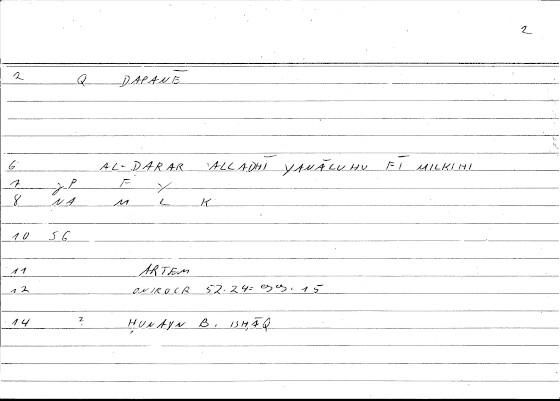 2
2 Q DAPANĒ
6 AL-DARAR ALLADHĪ YANĀLUHU FĪ MILKIHI
7 gP F Y
8 NA M L K
10 SG
11 ARTEM
12 ONIROCR 52.24= 99.15
14 ? ḤUNAYN B. ISḤĀQ